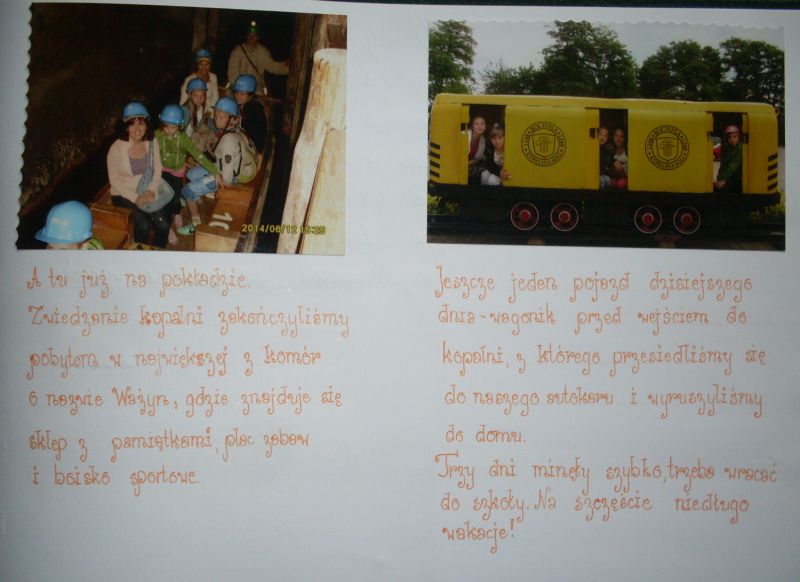 2014/06/12 15:25
A tu już na pokładzie.
Zwiedzanie kopalni zakończyliśmy
pobytem w największej z komór
o nazwie Ważyn, gdzie znajduje się
sklep z pamiątkami, plac zabaw
i boisko sportowe.
BOCHNIA
KOPALNIA SOLI
BOCHNIA
KOPALNIA SOLI
Jeszcze jeden pojazd dzisiejszego
dnia - wagonik przed wejściem do
kopalni, z którego przesiedliśmy się
do naszego autokaru i wyruszyliśmy
do domu.
Trzy dni minęły szybko, trzeba wracać
do szkoły. Na szczęście niedługo
wakacje!